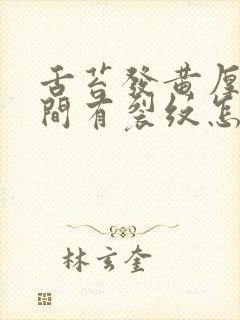 舌苔發黃厚
間有裂紋怎
林玄奎